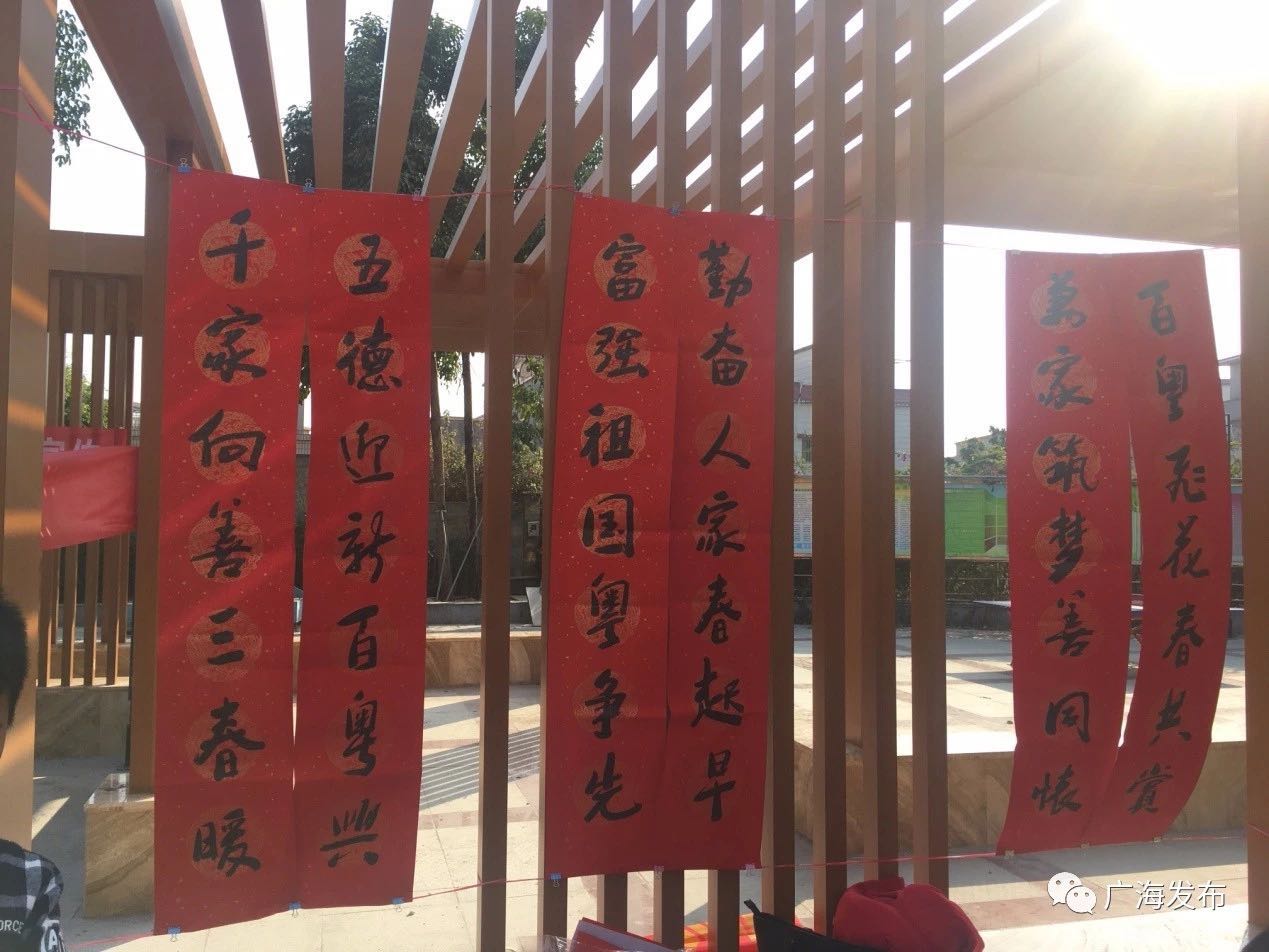 千家向善三春暖
五德迎新百粤興
勤奋人家春起早
富强祖国粤争先
百粤飛花春共赏
萬家筑梦善同懷
广海发布